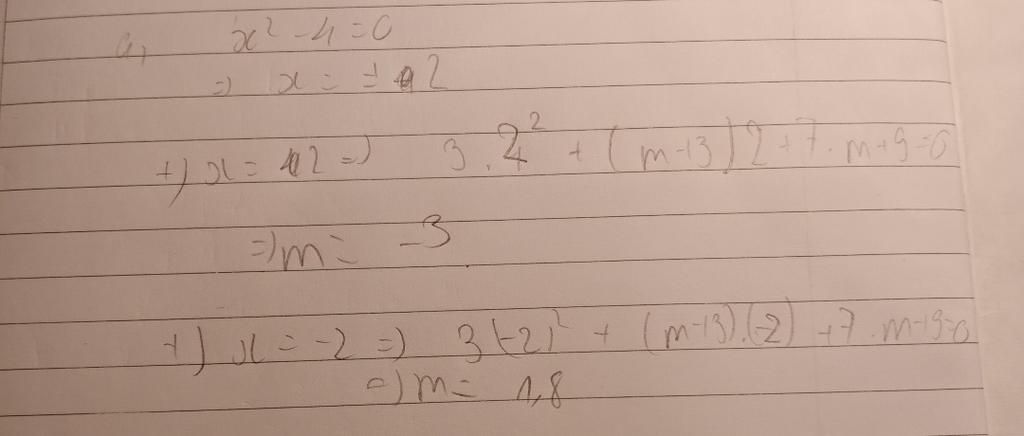 a, x² - 4 = 0
=) x = ± 2
+) x = 2 =) 3.2² + (m+3)2 + 7.m+9=0
=) m = -3
+) x = -2 =) 3(-2)² + (m+3).(-2) + 7.m+9=0
=) m = 1,8